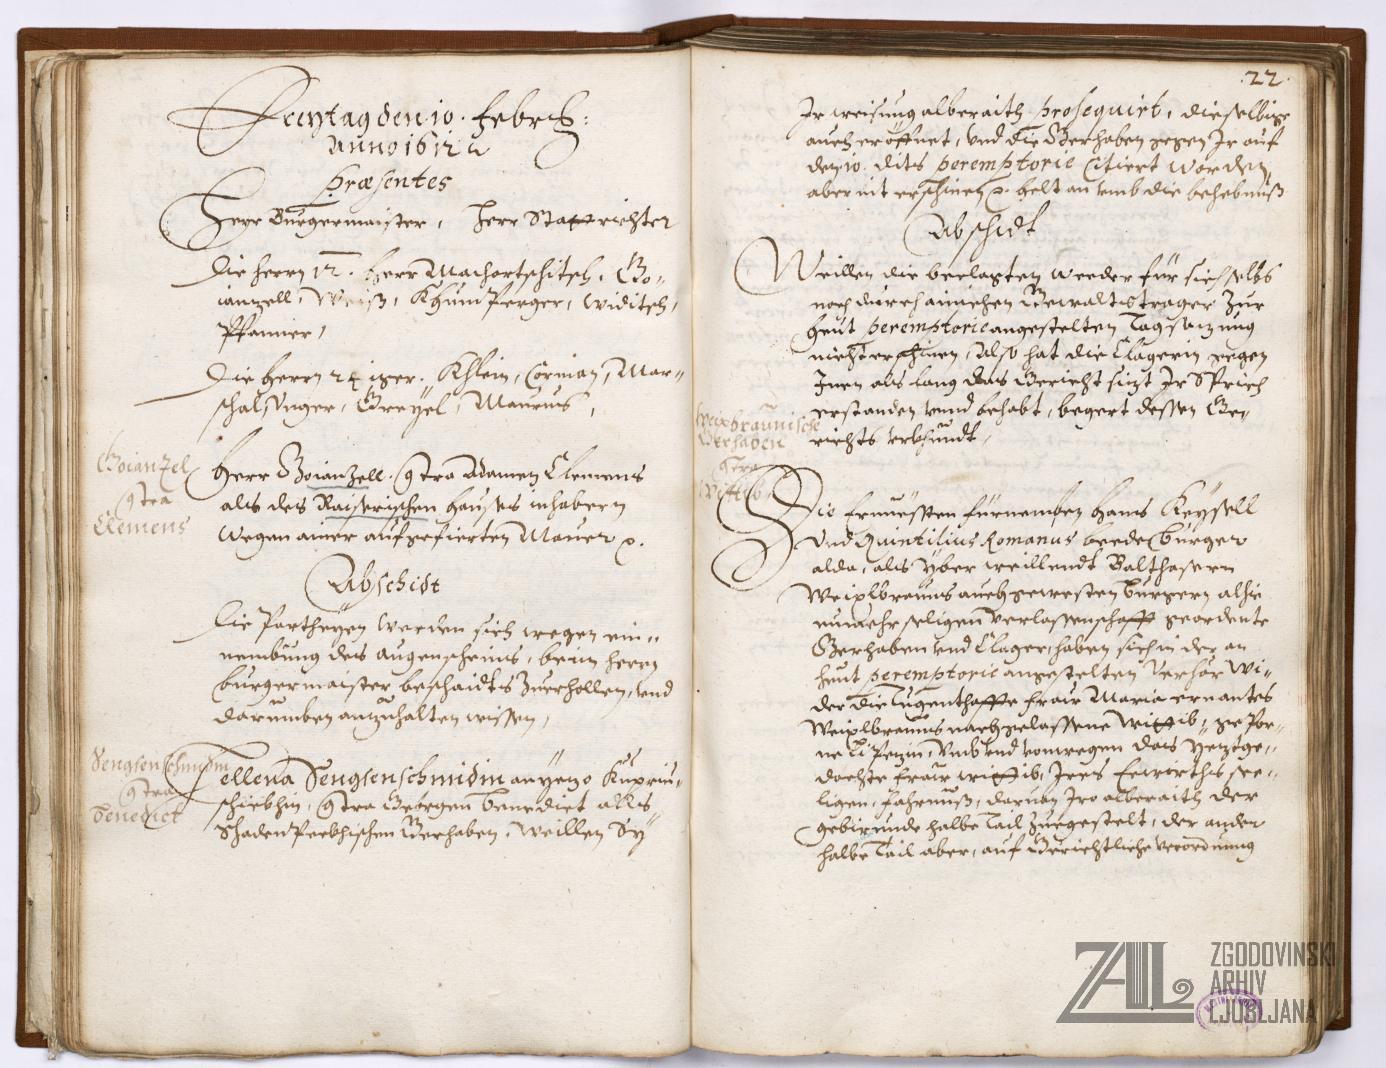 Freytag den 10. Febr:
Anno 1612
Præsentes
Herr Burgermaister, Herr Statrichter
Die Herrn 12. Herr Machortschitsch, Go-
ianzell, Weiß, Khumperger, Widitsch,
Pfanner,
Die Herrn 24iger. Khlein, Cornian, Mar-
schalsinger, Greyel, Maurus,
Goianzel
contra
Clemens
Herr Goianzell contra Adamen Clemens
als des Raiserischen Hauses inhabern
wegen ainer aufgefierten Maur
Abschidt
Die Partheyen werden sich wegen ein-
nembung des augenscheins, beim Herrn
Burgermaister beschaidts zuerhollen, und
darumben anzuhalten wissen,
Sengsenschmidin
contra
Benedict
Ellena Sengsenschmidin anyezo
contra Georgen Benedict als
Gerhaben, Weillen Sy
22
Ir weisung alberaith prosequirt, dieselbige
auch eröffnet, und die Gerhaben gegen Ir auf
den 10. dits peremptorie Citiert worden,
aber nit erschinen helt an umb die behebnuß
Abschidt
Weillen die beclagten weeder für sich selbs
noch durch ainichen Gewaltstrager zur
heut peremptorie angestelten Tagsazung
nicht erschinen, Also hat die Clagerin gegen
Inen als lang das Gericht sizt Ir Spruch
erstanden unnd behabt, begert dessen Ge-
richts Urkhundt,
Weixlbraunische
Gerhaben
contra
Wittib
Die Ernvessten fürnemben Hanns Keysell
und Quintilius Romanus beede Burger
alda, als yber weillendt Balthasern
Weixlbrauns auch gewesten Burgern alhie
nunmehr seligen verlassenschafft geordente
Gerhaben und Clager, haben sich in der an
heut peremptorie angestelten Verhör wi-
der die Tugenthaffte fraw Maria ernantes
Weixlbrauns nachgelassene Wittib, gebor-
ne und von wegen das yeztge-
dachte fraw wittib, Ires Ewirths see-
ligen, fahrnuß, daruon Iro alberaith der
gebirunde halbe Tail zuegestelt, der ander
halbe Tail aber, auf Gerichtliche verordnung
ZGODOVINSKI
ARHIV
LJUBLJANA